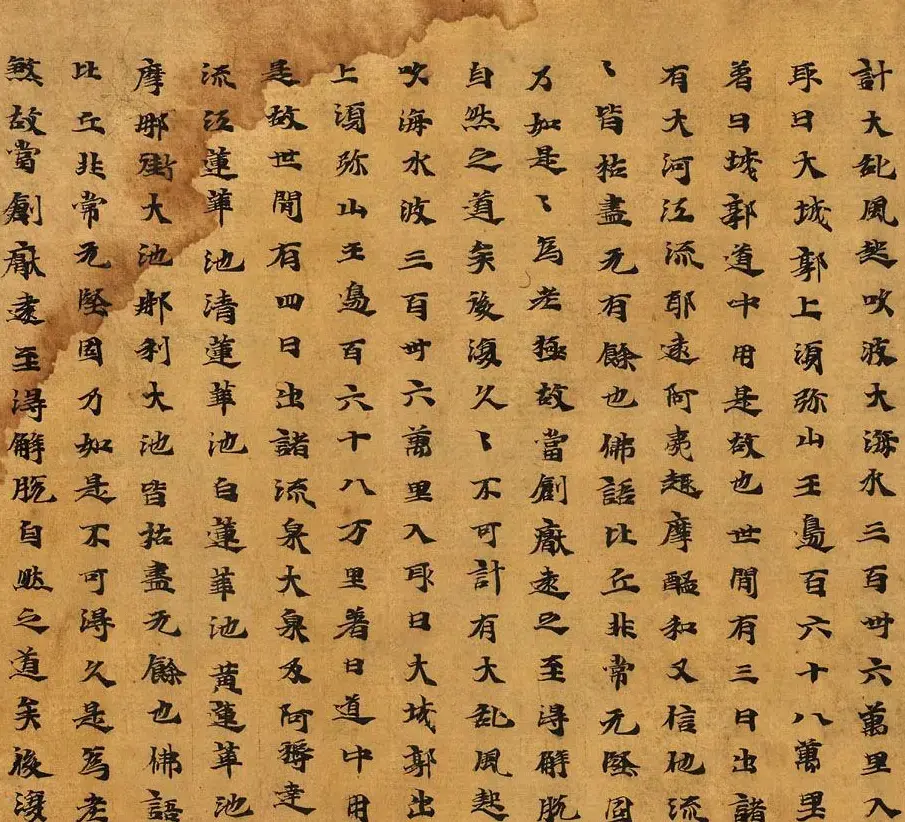 計大乱風起吹波大海水三百卅六萬里入
取日大城郭上須弥山王邊百六十八萬里
著日城郭道中用是故也世間有三日出諸
有大河江流耶遠阿夷越摩醯和叉信他流
〻皆枯盡无有餘也佛語比丘非常无堅固
乃如是〻為老極故當創猒遠之至得解脫
自然之道矣後復久〻不可計有大乱風起
吹海水波三百卅六萬里入取日大城郭出
上須弥山王邊百六十八万里著日道中用
是故世間有四日出諸流泉大泉及阿耨達
流江蓮華池清蓮華池白蓮華池黃蓮華池
摩那街大池那利大池皆枯盡无餘也佛語
比丘非常无堅固乃如是不可得久是為老
煞故當創猒遠至得解脫自然之道矣後復